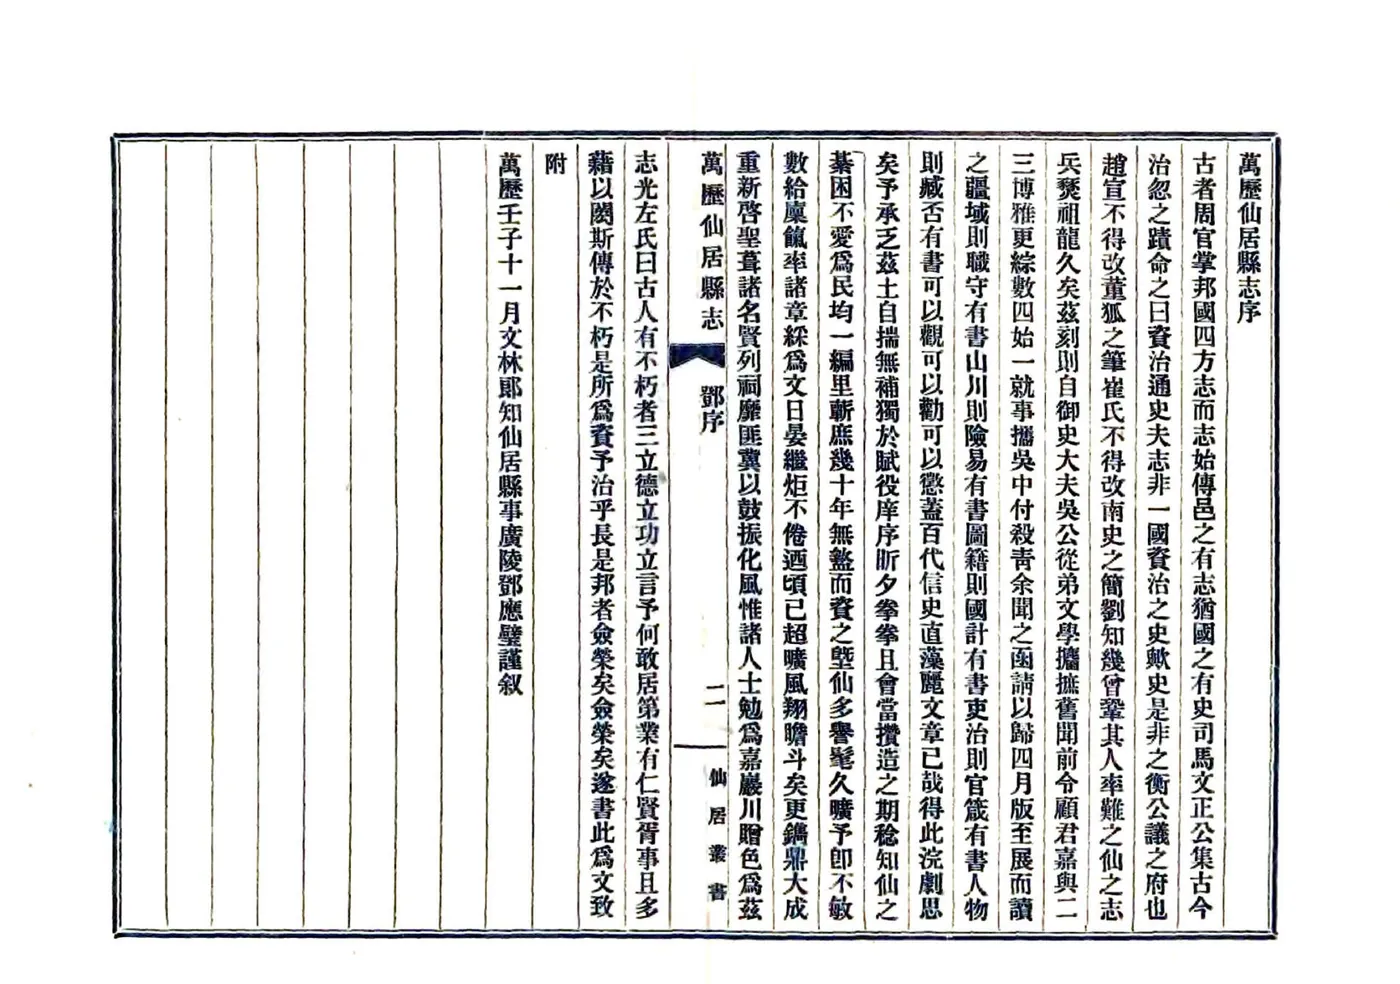 萬歷仙居縣志序
古者周官掌邦國四方志而志始傳邑之有志猶國之有史司馬文正公集古今
治忽之蹟命之曰資治通史夫志非一國資治之史歟史是非之衡公議之府也
趙宣不得改董狐之筆崔氏不得改南史之簡劉知幾曾鞏其人率難之仙之志
兵燹祖龍久矣茲刻則自御史大夫吳公從弟文學攟摭舊聞前令顧君嘉與二
三博雅更綜數四始一就事攜吳中付殺靑余聞之函請以歸四月版至展而讀
之疆域則職守有書山川則險易有書圖籍則國計有書吏治則官箴有書人物
則臧否有書可以觀可以勸可以懲蓋百代信史直藻麗文章已哉得此浣劇思
矣予承乏茲土自揣無補獨於賦役庠序昕夕拳拳且會當攢造之期稔知仙之
綦困不愛爲民均一編里蘄庶幾十年無盩而資之塈仙多譽髦久曠予卽不敏
數給廩餼率諸章綵爲文日晏繼炬不倦迺頃已超曠風翔瞻斗矣更鐫鼎大成
重新啓聖葺諸名賢列祠靡匪冀以鼓振化風惟諸人士勉爲嘉巖川贈色爲茲
萬歷仙居縣志
鄧序
二
仙居叢書
志光左氏曰古人有不朽者三立德立功立言予何敢居第業有仁賢胥事且多
藉以閎斯傳於不朽是所爲資予治乎長是邦者僉榮矣僉榮矣遂書此爲文致
附
萬歷壬子十一月文林郎知仙居縣事廣陵鄧應璧謹叙